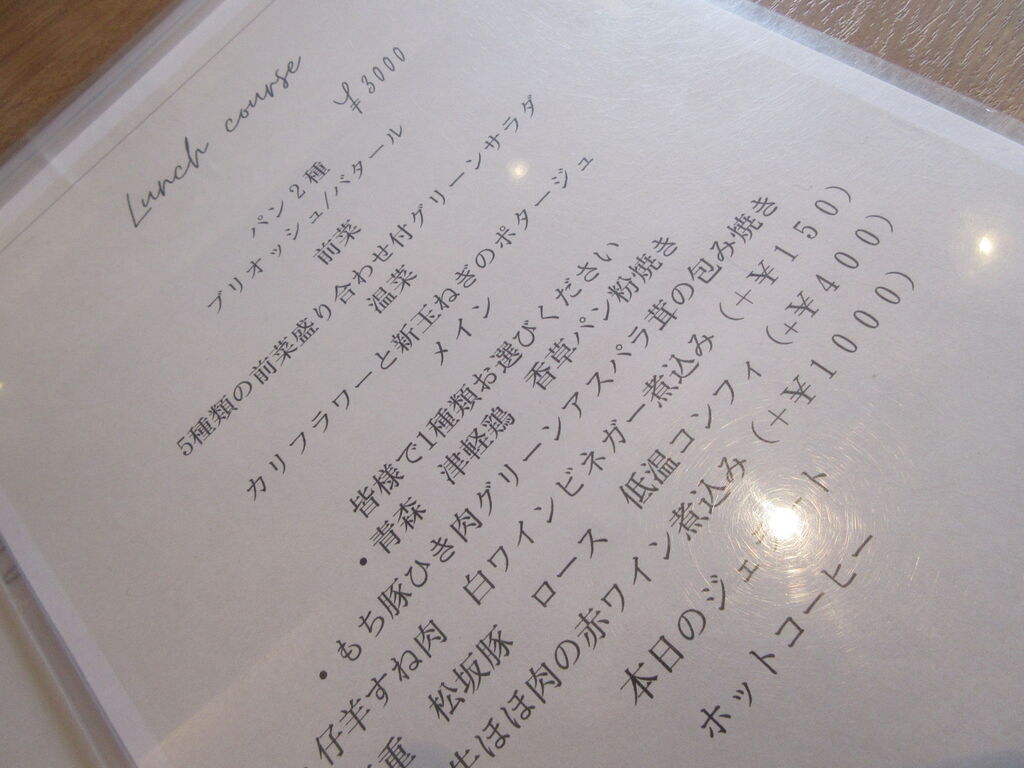 Lunch course
¥3000
パン2種
ブリオッシュ/バタール
前菜
5種類の前菜盛り合わせ付グリーンサラダ
温菜
カリフラワーと新玉ねぎのポタージュ
メイン
皆様で1種類お選びください
・青森 津軽鶏 香草パン粉焼き
・もち豚ひき肉グリーンアスパラ茸の包み焼き
仔羊すね肉 白ワインビネガー煮込み (+¥150)
重 松坂豚 ロース 低温コンフィ (+¥400)
牛ほほ肉の赤ワイン煮込み (+¥1000)
本日のジェラート
ホットコーヒー